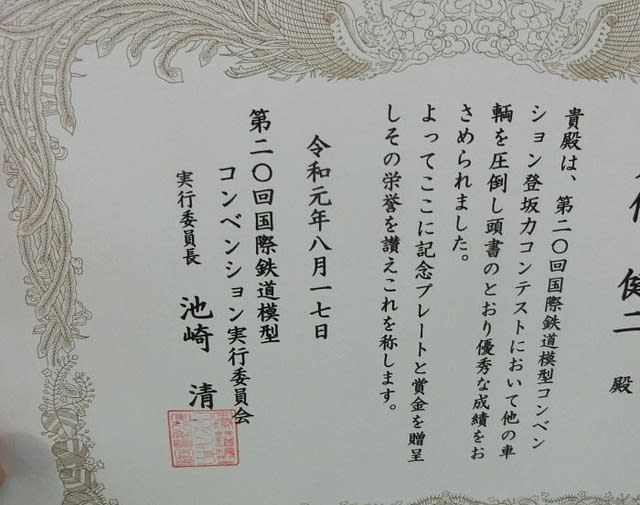 健二
殿
貴殿は、第二〇回国際鉄道模型コンベン
ション登坂力コンテストにおいて他の車
輌を圧倒し頭書のとおり優秀な成績をお
さめられました。
よってここに記念プレートと賞金を贈呈
しその栄誉を讃えこれを称します。
令和元年八月一七日
第二〇回国際鉄道模型
コンベンション実行委員会
実行委員長 池崎 清